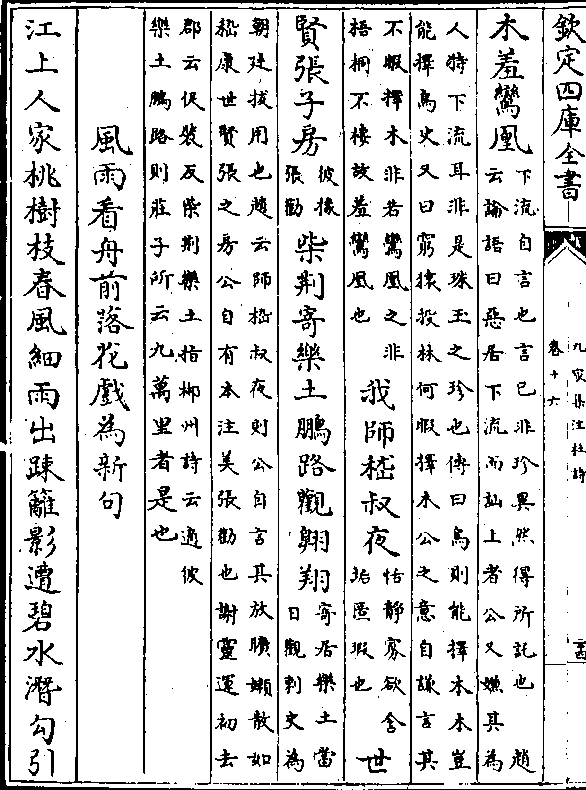 欽定四庫全書
九家集注杜詩
卷十六
木羞鸞凰
下流自言也言已非珍異然得所託也 趙
云論語曰惡居下流而訕上者公又嫌其為
人特下流耳非是珠玉之珍也傳曰鳥則能擇木木豈
能擇鳥史又曰窮猿投林何暇擇木公之意自謙言其
不暇擇木非若鸞凰之非
梧桐不棲故羞鸞凰也
我師嵇叔夜
恬靜寡欲含
垢匿瑕也
世
賢張子房
彼掾
張勸
柴荆寄樂土鵬路觀翺翔
寄居樂土當
日觀刺史為
朝廷拔用也趙云師嵇叔夜則公自言其放曠嬾散如
嵇康世賢張之房公自有本注美張勸也謝靈運初去
郡云促裝反柴荆樂土指郴州詩云適彼
樂土鵬路則莊子所云九萬里者是也
風雨看舟前落花戲為新句
江上人家桃樹枝春風細雨出踈籬影遭碧水潛勾引